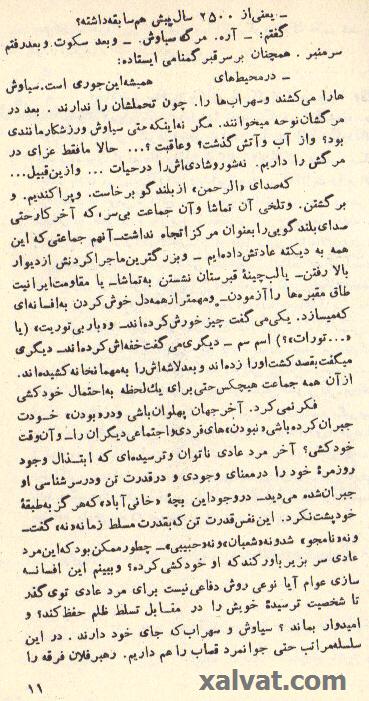 ـ یعنی از ۲۵۰۰ سال پیش هم سابقه داشته؟
گفتم: ـ آره. مرگ سیاوش. ـ وبعد سکوت وبعد رفتم
سرمنبر. همچنان برسرقبر گمنامی ایستاده:
ـ درمحیط‌های همیشه این‌جوری است. سیاوش
هارا می‌کشند وسهراب‌ها را. چون تحملشان را ندارند. بعد در
مرگشان نوحه میخوانند. مگر نه‌اینکه حتی سیاوش ورزشکارمانندی
بود؟ واز آب وآتش گذشت؟ وعاقبت ؟... حالا مافقط عزای در
مرگش را داریم. نه‌شوروشادی‌اش‌را درحیات ... وازین‌قبیل...
که‌صدای «الرحمن» ازبلندگو برخاست. وپراکندیم. و
برگشتن. وتلخی آن تماشا وآن جماعت بی‌سر، که آخرکارحتی
صدای بلندگویی‌رابعنوان مرکزاتجاه نداشت. آنهم جماعتی‌که این
همه به دیکته عادتش داده‌ایم ـ وبزرگترین ماجراکردنش ازدیوار
بالا رفتن- یالب‌چینهٔ قبرستان نشستن به‌تماشا- یا مقاومت ایرانیت
طاق مقبره‌ها را آزمودن ـ ومهمتر ازهمه‌دل خوش کردن به‌افسانه‌ای
که‌میسازد. یکی‌می گفت چیزخورش‌کرده‌اند- و«باربی‌توریت» (یا
«...تورات»؟) اسم سم - دیگری‌می گفت خفه‌اش کرده‌اند- دیگری
میگفت بقصدکشت‌اورا زده‌اند وبعدلاشه‌اش را به‌مهمانخانه کشیده‌اند.
ازآن همه جماعت هیچکس حتی‌برای یک‌لحظه به‌احتمال خودکشی
فکرنمی کرد. آخرجهان پهلوان‌باشی و«ره‌بودن» خودت
جبران کرده‌باشی «نبودن»های‌فردی واجتماعی دیگران را- وآن‌وقت
خودکشی؟ آخر مرد عادی ناتوان وترسیده‌ای که ابتذال وجود
روزمرهٔ خود را درمعنای وجودی و درقدرت تن ودرسرشناسی او
جبران‌شده می‌دید- دروجود این بچهٔ «خانی‌آباد» که هرگز به‌طبقهٔ
خودپشت‌نکرد. این نفس‌قدرت تن‌که بقدرت مسلط زمانه«نه» گفت-
ونه«نامجو» شدونه«شعبان» ونه «حبیبی»ـ چطورممکن بودکه این مرد
عادی سر بزیر باورکندکه او خودکشی کرده؟ وببینم این افسانه
سازی عوام آیا نوعی روش دفاعی نیست برای مرد عادی توی‌گذر
تا شخصیت ترسیدهٔ خویش را در مقابل تسلط ظلم حفظ‌کند؟ و
امیدوار بماند ؟ سیاوش و سهراب‌که جای خود دارند. در این
سلسله‌مراتب حتی جوانمرد قصاب را هم داریم. رهبرفلان فرقه را
۱۱
xalvat.com